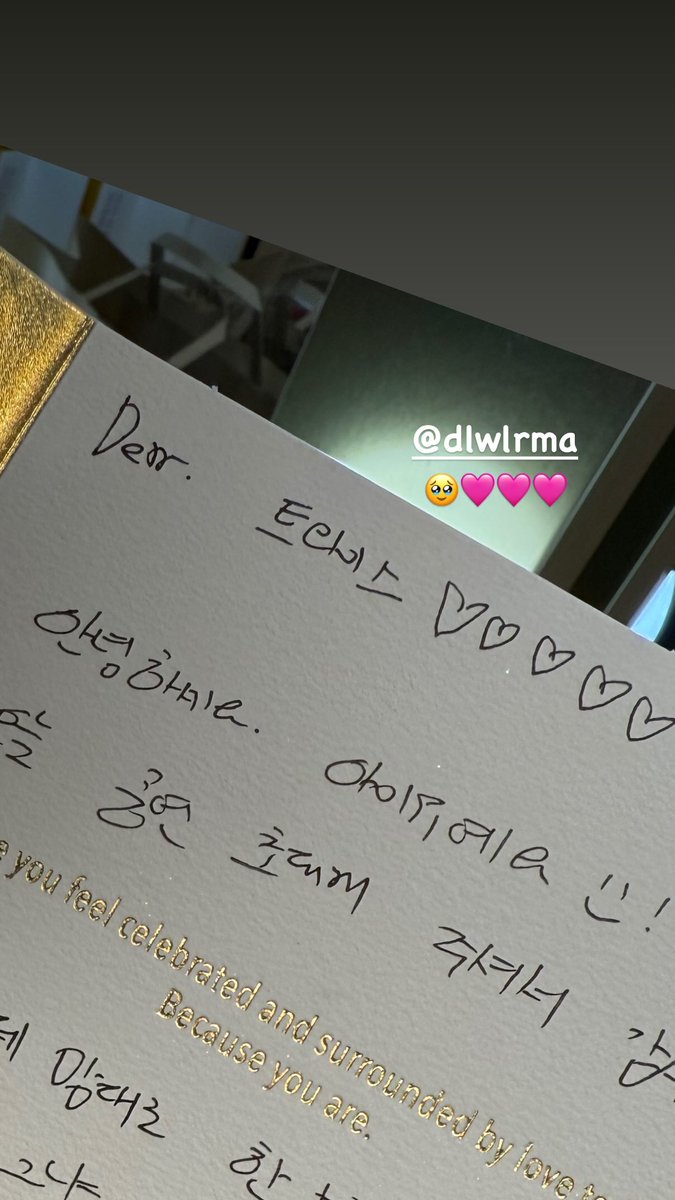 @dlwlrma
🥹🩷🩷🩷
Dear. 트와이스 ♡♡♡♡♡
안녕하세요. 아이유예요 :)!
공연 초대해 주셔서
you feel celebrated and surrounded by love to
Because you are.
맘대로 한